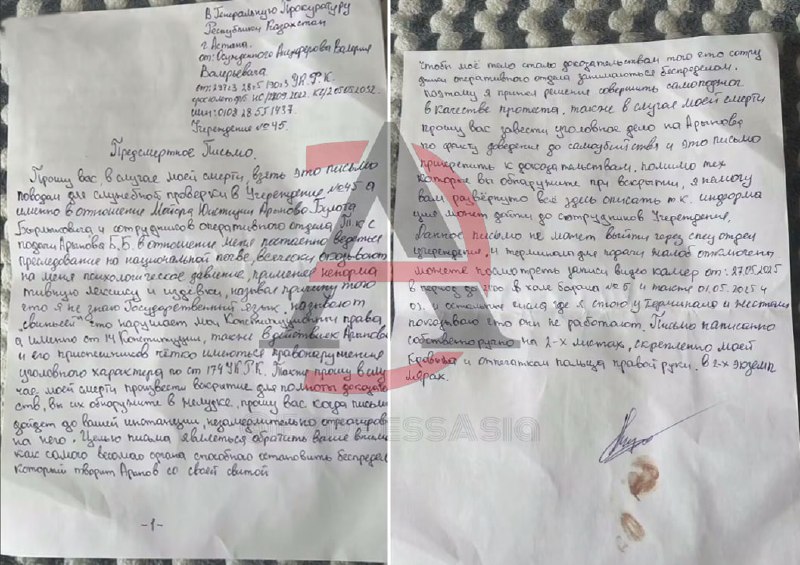 В Генеральную Прокуратуру
Республики Казахстан
г. Астана.
от: Осужденного Анциферова Валерия
Валерьевича.
Учреждение №45.
Предсмертное Письмо.
Прошу вас, в случае моей смерти, взять это письмо
поводам для служебной проверки в Учреждение №45 а
именно в отношение Майора Юстиции Арынова Булата
и сотрудников оперативного отдела. Т.к с
подачи Арынова Б.Б. в отношение меня постоянно ведется
преследование на национальной почве, всячески оказывают
на меня психологическое давление, применяя ненорма
тивную лексику и издевки, назвал причину того
что я не знаю Государственный язык, называют
"свиньей" что нарушает мои Конституционный права
а именно ст 14 Конституции, также в действиях Арынова
и его приспешников чётко имеються правонарушения
уголовного характера по ст 174 УК.Р.К. Также прошу вслу
чае моей смерти произвести вскрытие для полноты доказате
ств, вы их обнаружите в желудке, прошу вас когда письмо
дойдет до вашей инстанции, незамедлительно отреагировать
на него. Целью письма являеться обратить ваше внима
как самого весомого органа способного остановить беспредел
который творит Арынов со своей свитой
-1-
чтобы моё тело стало доказательствам того что сотру
дники оперативного отдела занимаються беспределом.
Поэтому я принял решение совершить самоподжог
в качестве протеста, также в случае моей смерти
прошу вас завести уголовное дело на Арынова
по факту доведения до самоубийства и это письмо
прикрепить к доказательствам, помимо тех
которые вы обнаружите при вскрытии, я не могу
вам развёрнуто всё здесь описать т.к. информа
ция может дойти до сотрудников Учреждения,
Данное письмо не может выйти через спец отдел
учреждения, и терминал для подачи жалоб отключены
можете посмотреть записи видео камер от: 27.05.2025
в период до в холе барака №5 и также 01.05.2025 и
остальные числа где я стою у Терминала и жестами
показываю что они не работают. Письмо написанно
собственоручно на 2-х листах, скрепленно моей
Кровью и отпечаткам пальца правой руки. в 2-х экземп
лярах.
PressAsia